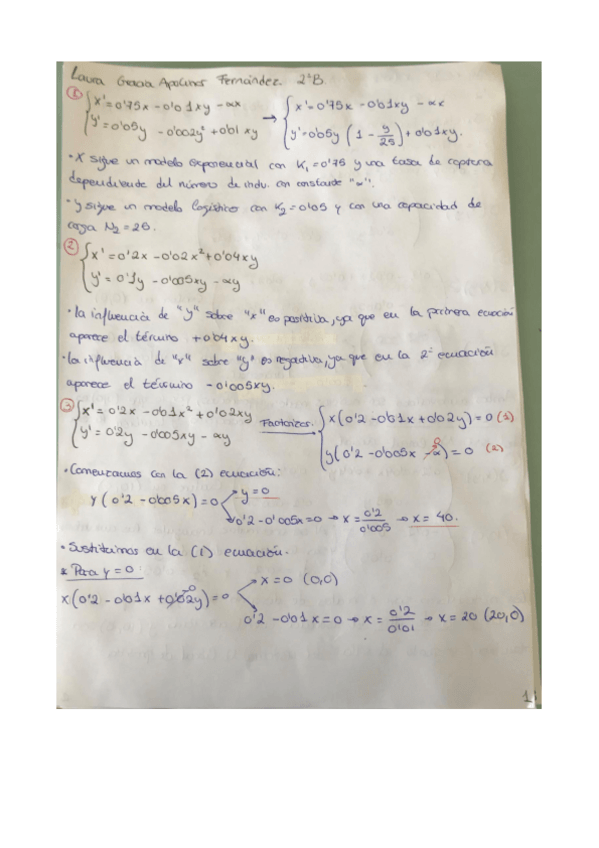 Laura Gracia Apolinar Fernández. 2ºB.
① { x' = 0'75x - 0'01xy - αx → { x' = 0'75x - 0'01xy - αx
y' = 0'05y - 0'002y² + 0'01xy y' = 0'05y (1 - y/25) + 0'01xy.
• X sigue un modelo exponencial con K₁ = 0'75 y una tasa de captura
dependiendo del número de indiv. con constante "α".
• y sigue un modelo logístico con K₂ = 0'05 y con una capacidad de
carga N₂ = 25.
② { x' = 0'2x - 0'02x² + 0'04xy
y' = 0'1y - 0'005xy - αy
• la influencia de "y" sobre "x" es positiva, ya que en la primera ecuación
aparece el término + 0'04xy.
• la influencia de "x" sobre "y" es negativa, ya que en la 2ª ecuación
aparece el término - 0'005xy.
③ { x' = 0'2x - 0'01x² + 0'02xy Factorizar → { x(0'2 - 0'01x + 0'02y) = 0 (1)
y' = 0'2y - 0'005xy - αy y(0'2 - 0'005x - α) = 0 (2)
• Comenzamos con la (2) ecuación:
y (0'2 - 0'005x) = 0 y = 0
0'2 - 0'005x = 0 → x = 0'2/0'005 → x = 40.
• Sustituimos en la (1) ecuación.
* Para y = 0
x(0'2 - 0'01x + 0'02y) = 0 x = 0 (0,0)
0'2 - 0'01x = 0 → x = 0'2/0'01 → x = 20 (20,0)